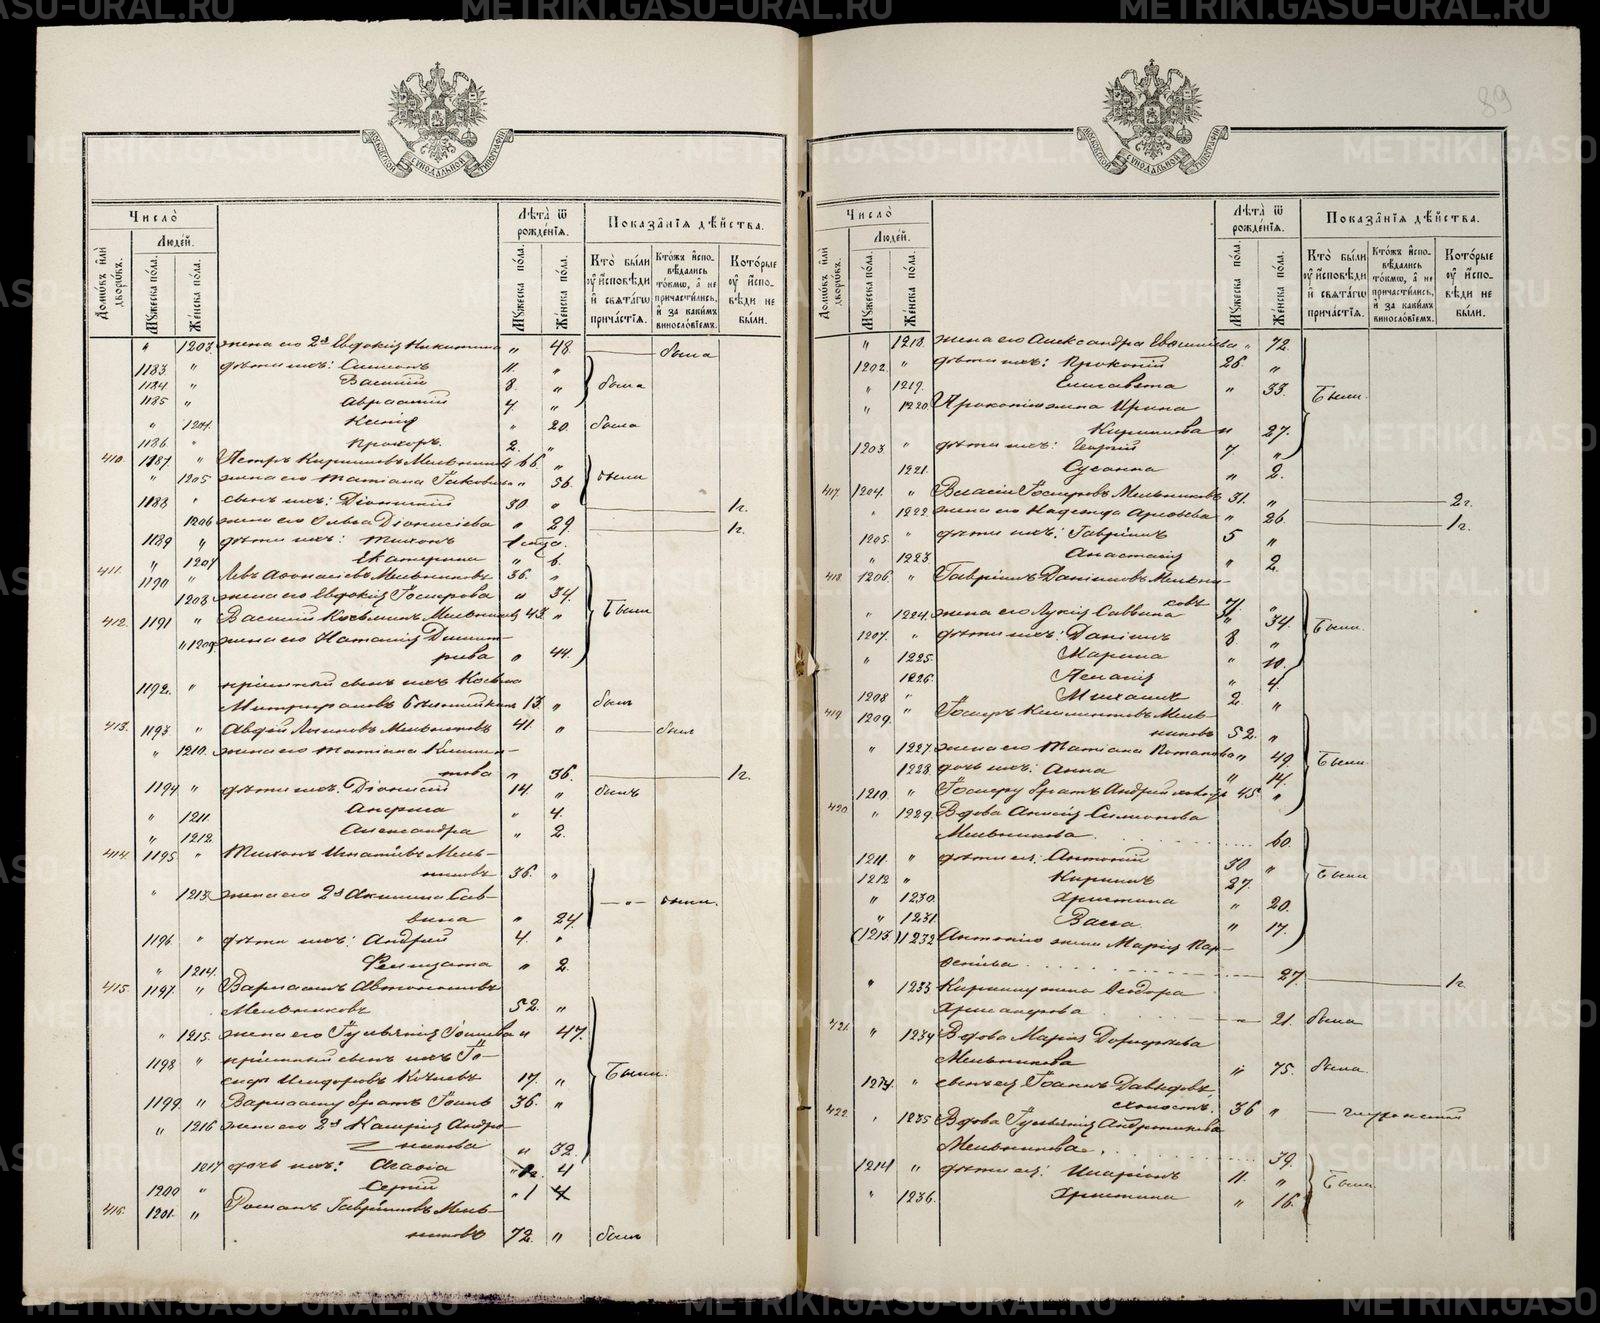 METRIKI.GASO-URAL.RU
89
МОСКОВСКОЙ СѴНОДАЛЬНОЙ ТИПОГРАФІИ
Число̀
Домѡ́въ и҆лѝ дворѡ́въ.
Люде́й.
Мꙋ́жеска по́ла.
Же́нска по́ла.
Лѣта̀ ѿ рожде́нїѧ.
Мꙋ́жеска по́ла.
Же́нска по́ла.
Показа̑нїѧ дѣ́йства.
Кто̀ бы́ли ᲂу҆ и҆́сповѣди и҆ свѧта́гѡ прича́стїѧ.
Кто́жъ и҆спо-вѣдались то́кмѡ, а҆ не причасти́лись, и҆ за каки́мъ винослѡ́вїемъ.
Кото́рые ᲂу҆ и҆́спо-вѣди не бы́ли.
" 1203. жена его 2я Евдокія Никитина " 48. была
1183 " дѣти ихъ: Симеонъ 11. "
1184 " Василій 8. " были
1185 " Авраамій 4. "
" 1204. Ксенія " 20. была
1186 " Прохоръ 2. "
410. 1187 " Петръ Кирилловъ Мельниковъ 66 "
" 1205 жена его Татіана Іаковлева " 56. были
1188 " сынъ ихъ: Діонисій 30 " 1г.
1206 жена его Ольга Діонисіева " 29 1г.
1189 " дѣти ихъ: Тихонъ 1
" 1207 Екатерина " 6.
411. 1190 " Левъ Аѳонасіевъ Мельниковъ 36. "
1208 жена его Евдокія Іосифова " 34.
412. 1191 " Василій Козьминъ Мельниковъ 43. " Были
" 1209 жена его Наталія Димит-
ріева " 44.
1192. " пріемный сынъ ихъ Косьма
13. " былъ
413. 1193 " Авдій Логиновъ Мельниковъ 41 " был
" 1210. жена его Татіана Климен-
това " 36. 1г.
1194 " дѣти ихъ: Діонисій 14 " былъ
" 1211 Анфиса " 4.
" 1212. Александра " 2.
414. 1195 " Тихонъ Игнатіевъ Мель-
никовъ 36. "
" 1213. жена его 2я Акилина Сав-
вина " 24. были.
1196. " дѣти ихъ: Андрей 4. "
" 1214. Фелицата " 2.
415. 1197. " Варлаамъ Автономовъ
Мельниковъ 52. "
" 1215. жена его Гуліанія Іовлева " 47.
1198 " пріемный сынъ ихъ Іо-
сифъ Исидоровъ 17. " Были.
1199. " Варлааму братъ Іовъ 36. "
" 1216 жена его 2я Андро-
никова " 32.
1217 дочь ихъ: Агаѳія " 4
1200 " Сергій 1
416. 1201. " Романъ Гавріиловъ Мель-
никовъ 72. " былъ
Число̀
Домѡ́въ и҆лѝ дворѡ́въ.
Люде́й.
Мꙋ́жеска по́ла.
Же́нска по́ла.
Лѣта̀ ѿ рожде́нїѧ.
Мꙋ́жеска по́ла.
Же́нска по́ла.
Показа̑нїѧ дѣ́йства.
Кто̀ бы́ли ᲂу҆ и҆́сповѣди и҆ свѧта́гѡ прича́стїѧ.
Кто́жъ и҆спо-вѣдались то́кмѡ, а҆ не причасти́лись, и҆ за каки́мъ винослѡ́вїемъ.
Кото́рые ᲂу҆ и҆́спо-вѣди не бы́ли.
" 1218. жена его Александра " 72.
1202. " дѣти ихъ: Прокопій 26. "
" 1219. Елисавета " 33. Были.
" 1220. Прокопію жена Ирина
Кириллова " 27.
1203 " дѣти ихъ: Георгій 7 "
1221. Сусанна " 2.
417. 1204. " Власій Іосифовъ Мельниковъ 31. " 2г.
" 1222. жена его Надежда " 26. 1г.
1205. " дѣти ихъ: Гавріилъ 5 "
" 1223 Анастасія " 2.
418. 1206. " Гавріилъ Даніиловъ Мельни-
ковъ "
" 1224. жена его Лукія Саввина " 34. Были.
1207. " дѣти ихъ: Даніилъ 8. "
" 1225. Марина " 10.
1226. Пелагія " 4.
1208 " Михаилъ 2. "
419. 1209. " Іосифъ Климентовъ Мель-
никовъ 52. "
" 1227 жена его Татіана Потапова " 49.
1228 дочь ихъ: Анна " 14. Были.
1210. " Іосифу братъ Андрей 45. "
420. " 1229. Вдова Анисія Симеонова
Мельникова 60.
1211. " дѣти ея: Антоній 30. "
1212 " Кириллъ 27. " Были
" 1230. Христина " 20.
" 1231. Васса " 17.
(1213.) 1232 Антонію жена Марія Кар-
27. 1г.
" 1233 Кириллу жена Ѳеодора
Хрисанфова 21. была
421. " 1234 Вдова Марія Дорофеева
Мельникова " 75. была.
" сынъ ея Іоаннъ Давыдовъ
холостъ. 36 "
422. " 1235 Вдова Гуліанія Андроникова
Мельникова 39.
1214 " дѣти ея: Иларіонъ 11. " Были.
" 1236. Христина " 16.